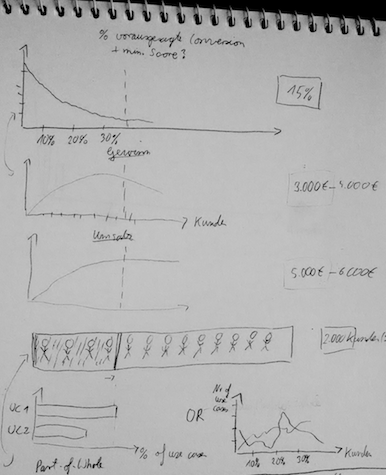 % vorausgesagte Conversion
+ min. Score?
15%
10% 20% 30%
Gewinn
3.000€ - 4.000€
Kunden
Umsatz
5.000€ - 6000€
2.000 Kunden
UC1
UC2
% of use cases
Part-of-Whole
OR
Nr of use cases
10% 20% 30%
Kunden